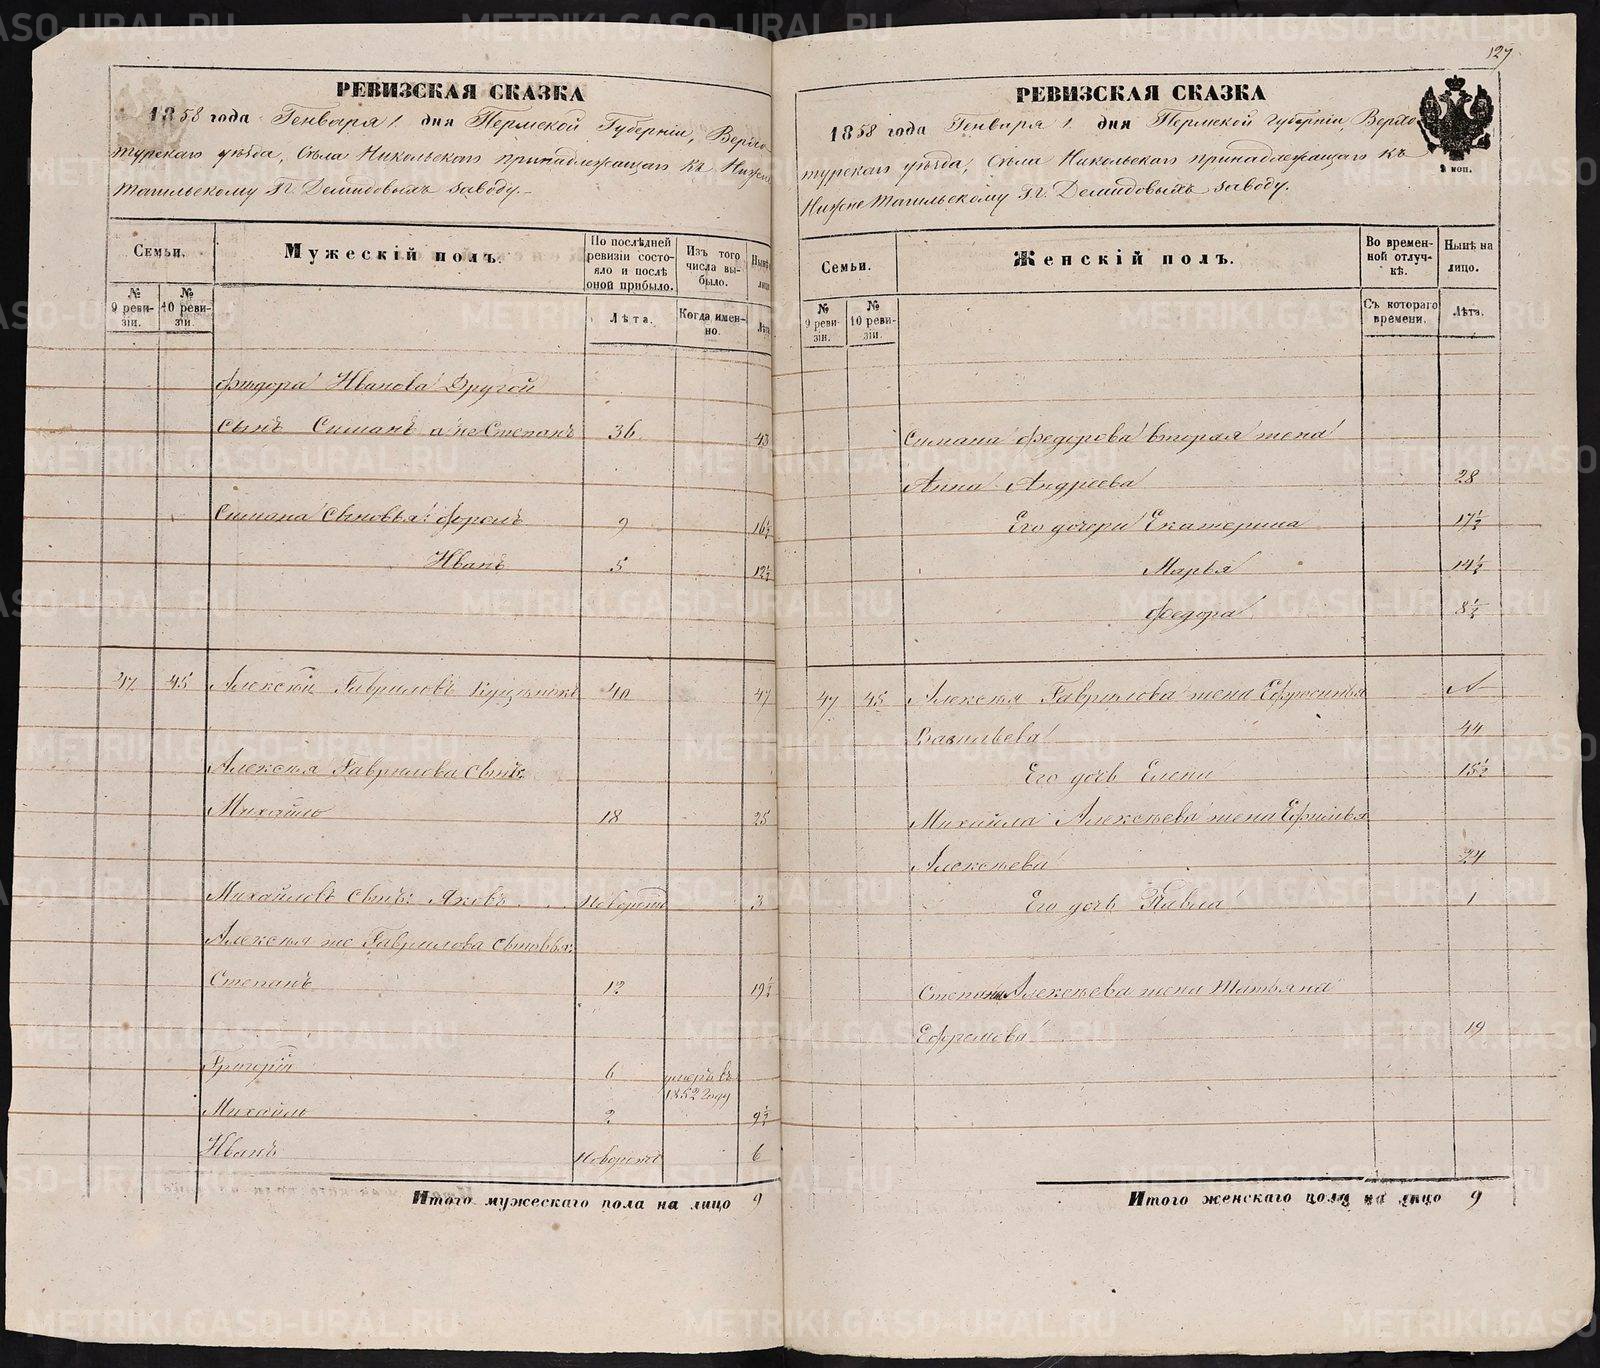 127
РЕВИЗСКАЯ СКАЗКА
1858 года Генваря 1 дня Пермской Губерніи, Верхо-
турскаго уѣзда, Села Никольскаго принадлежащаго къ Нижне
Тагильскому Гг. Демидовыхъ заводу.
Семьи.
Мужескій полъ.
По послѣдней ревизіи состо-яло и послѣ оной прибыло.
Изъ того числа вы-было.
Нынѣ
лицо
№ 9 реви-зіи.
№ 10 реви-зіи.
Лѣта.
Когда имен-но.
Лѣта
Федора Иванова Другой
сынъ Симанъ а не Степанъ 36 43
Симана Сыновья: Ефремъ 9 16½
Иванъ 5 12½
47 45 Алексѣй Гавриловъ 40 47
Алексѣя Гаврилова сынъ
Михайло 18 25
Михайловъ сынъ: Яковъ новорожд 3
Алексѣя же Гаврилова сыновья:
Степанъ 12 19½
Григорій 6 умеръ въ 1852 году
Михайло 2 9½
Иванъ новорожд 6
Итого мужескаго пола на лицо 9
РЕВИЗСКАЯ СКАЗКА
1858 года Генваря 1 дня Пермской Губерніи, Верхо
турскаго уѣзда, Села Никольскаго принадлежащаго къ
Нижне Тагильскому Гг. Демидовыхъ заводу.
Семьи.
Женскій полъ.
Во времен-ной отлуч-кѣ.
Нынѣ на лицо.
№ 9 реви-зіи.
№ 10 реви-зіи.
Съ котораго времени.
Лѣта.
Симана Федорова вторая жена
Анна Андреева 28
Его дочери Екатерина 17½
Марья 14½
Федора 8½
47 45 Алексѣя Гаврилова жена Ефросинья
Васильева 44
Его дочь Елена 15½
Михайла Алексѣева жена
Алексѣева 24
Его дочь Павла 1
Степана Алексѣева жена Татьяна
Ефремова 19
Итого женскаго пола на лицо 9
METRIKI.GASO-URAL.RU